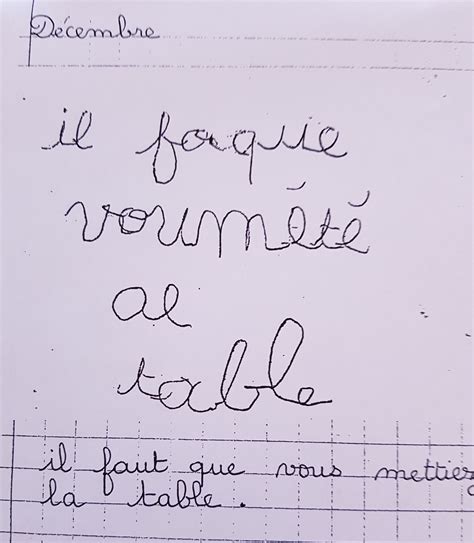 Décembre
il faque
voumété
al
table
il faut que vous mettiez
la table.